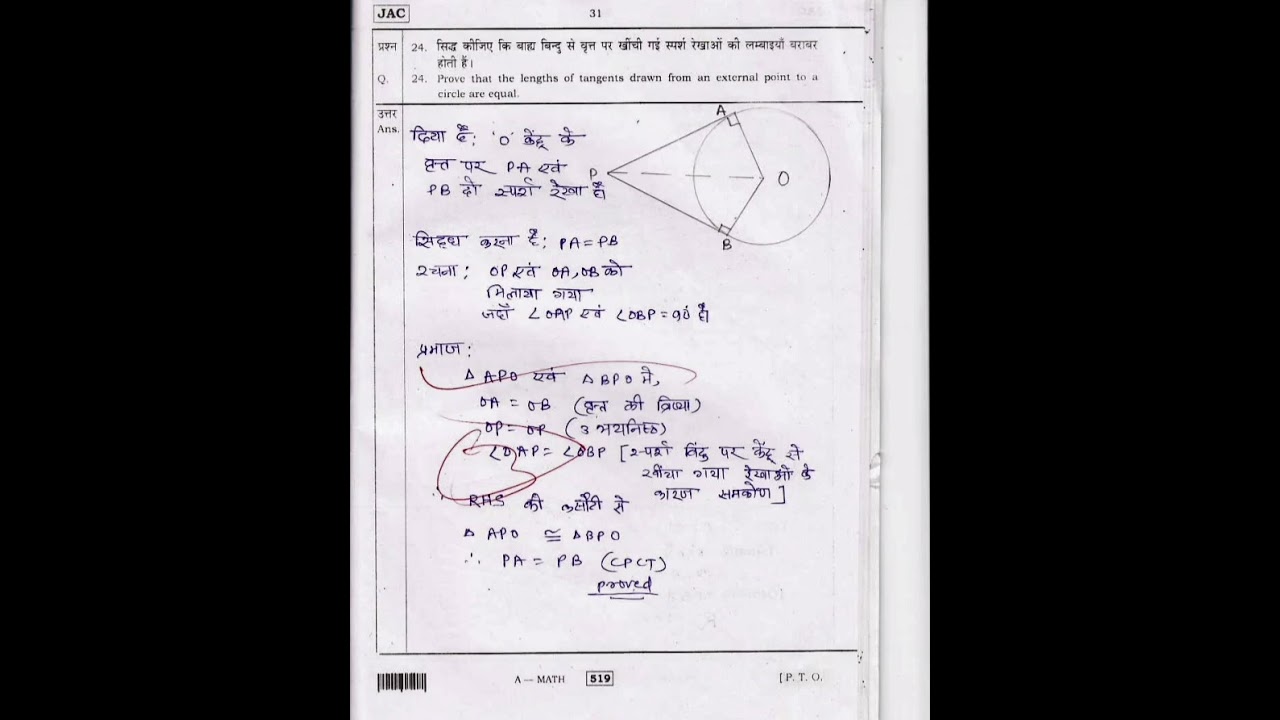 JAC
31
प्रश्न 24. सिद्ध कीजिए कि बाह्य बिन्दु से वृत्त पर खींची गई स्पर्श रेखाओं की लम्बाइयाँ बराबर
होती हैं।
Q. 24. Prove that the lengths of tangents drawn from an external point to a
circle are equal.
उत्तर
Ans.
दिया है: 'O' केंद्र के
वृत्त पर PA एवं
PB दो स्पर्श रेखा है।
A
P
O
B
सिद्ध करना है: PA = PB
रचना: OP एवं OA, OB को
मिलाया गया
जहाँ ∠OAP एवं ∠OBP = 90° है।
प्रमाण:
△ APO एवं △ BPO में,
OA = OB (वृत्त की त्रिज्या)
OP = OP (उभयनिष्ठ)
∠OAP = ∠OBP [स्पर्श बिंदु पर केंद्र से
खींचा गया रेखाओं के
कारण समकोण]
∴ RHS की कसौटी से
△ APO ≅ △BPO
∴ PA = PB (CPCT)
proved
A — MATH 519 [ P. T. O.